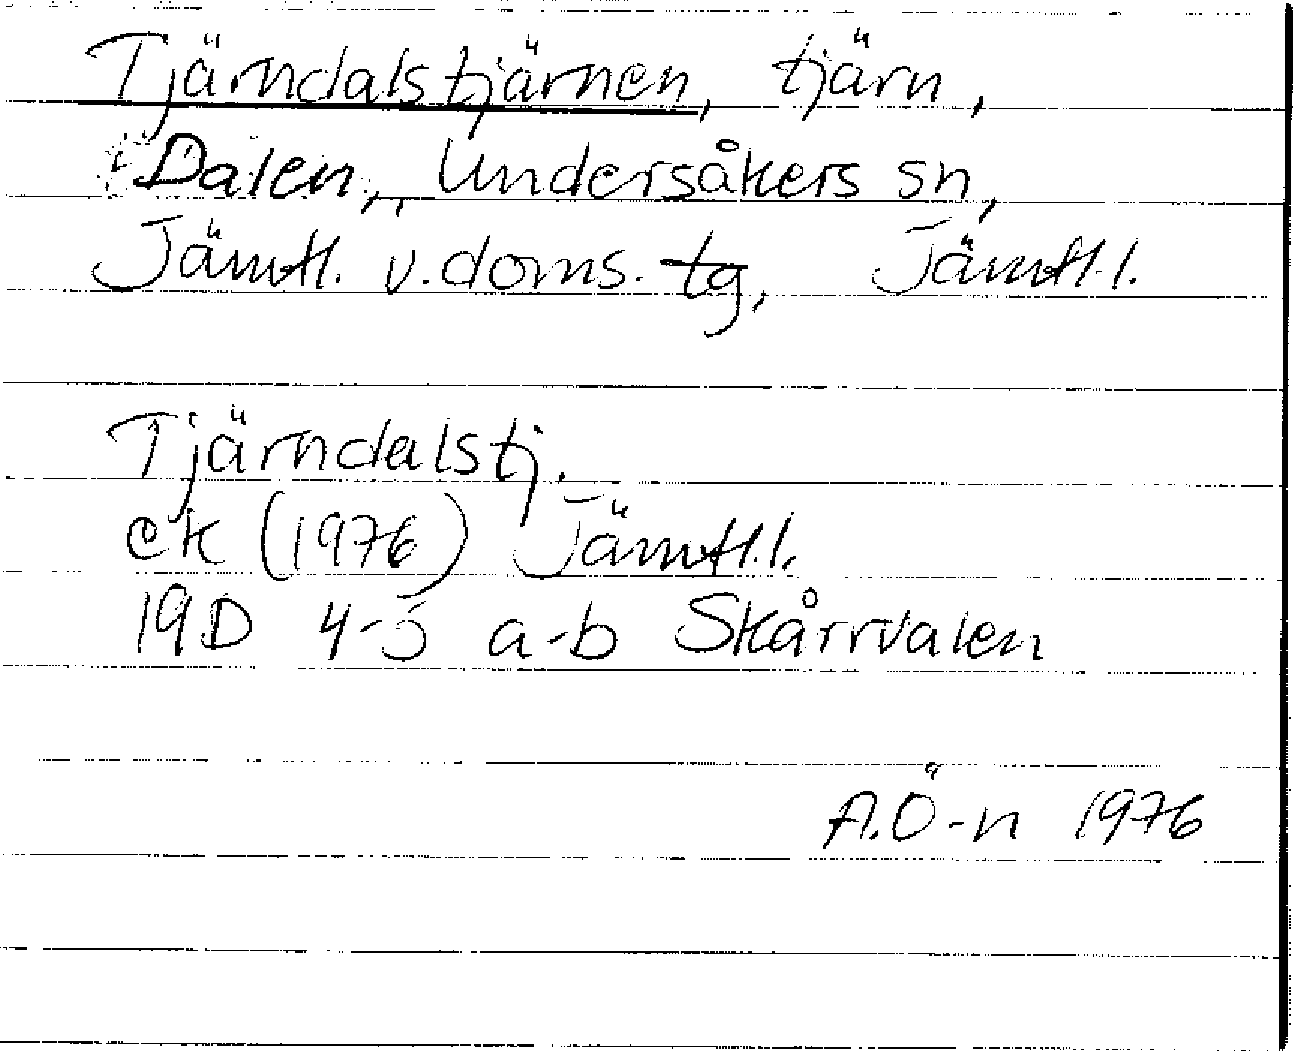 Tjärndalstjärnen, tjärn,
Dalen, Undersåkers sn,
Jämtl. v. doms. tg, Jämtl. l.
Tjärndalstj.
ek (1976) Jämtl. l.
19D 4-5 a-b Skårrvalen
A.Ö-n 1976